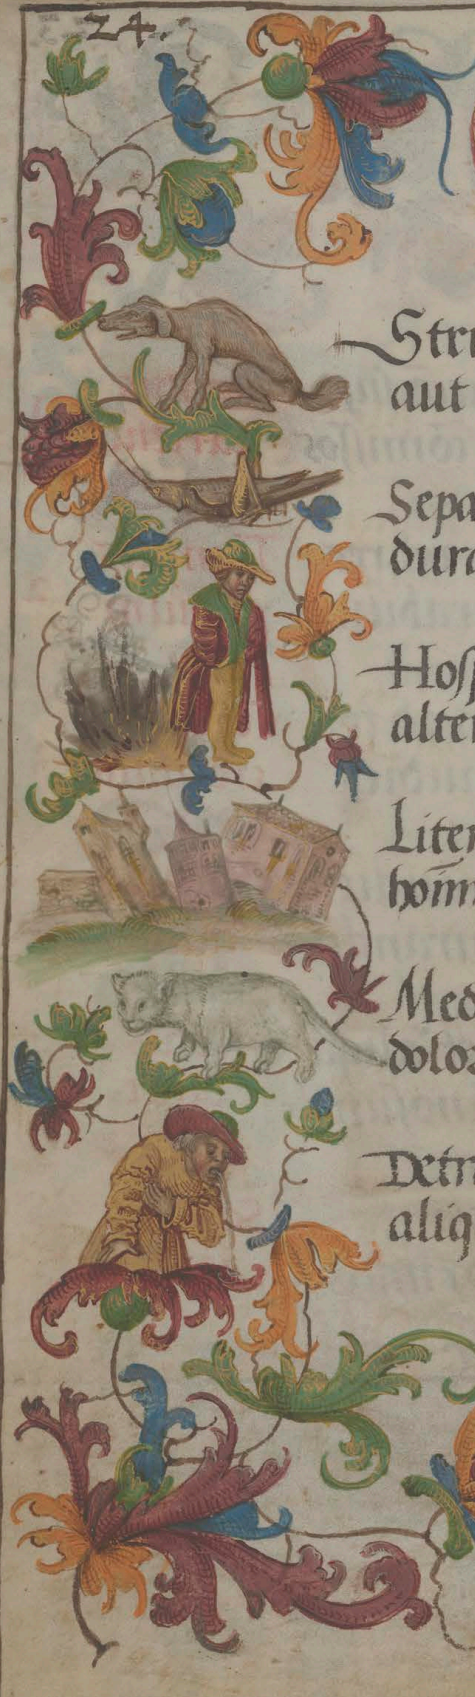 24.
Stri
aut
Sepa
dura
Hosp
alter
Liter
hoīm
Med
dolor
Detr
aliq